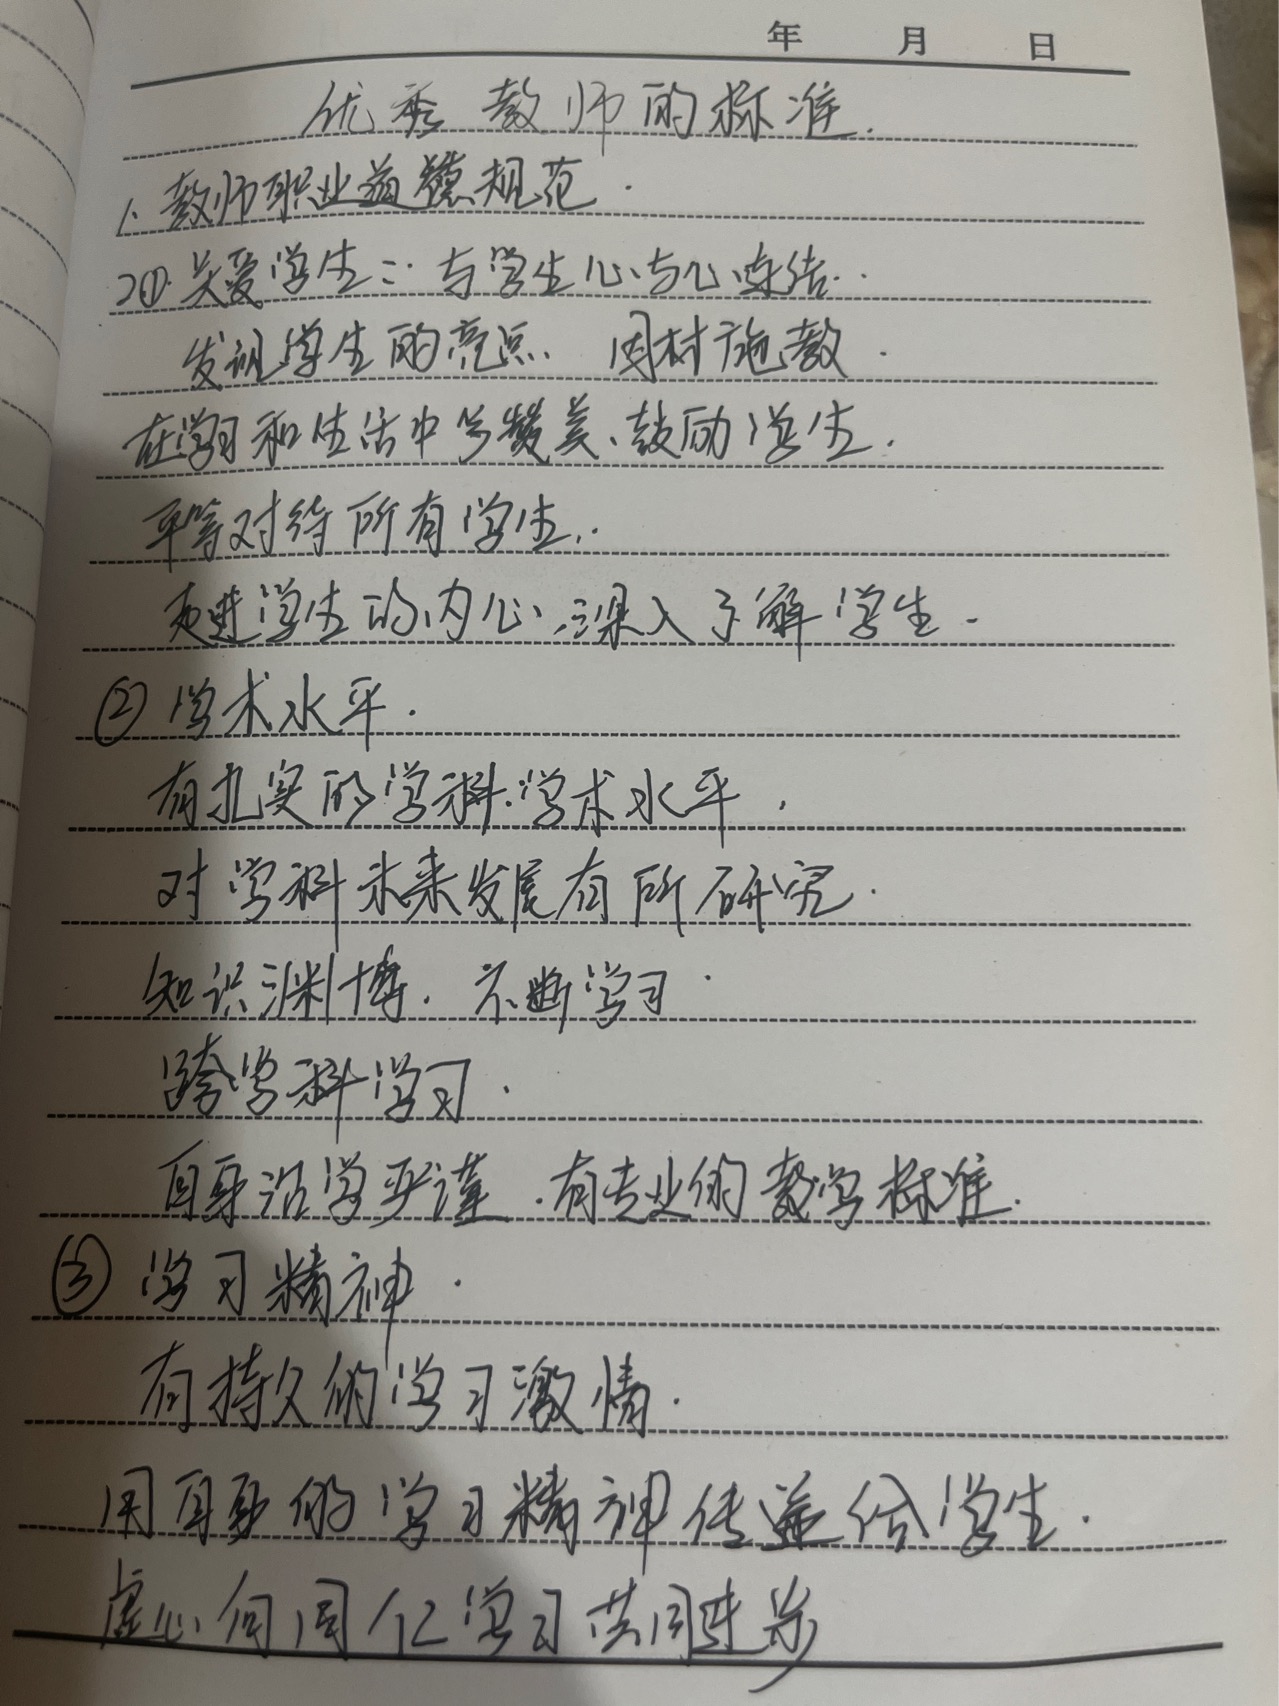 年 月 日
优秀教师的标准.
1、教师职业道德规范.
2①.关爱学生:与学生心与心冻结.
发现学生的亮点、因材施教.
在学习和生活中多赞美、鼓励学生.
平等对待所有学生.
走进学生的内心,深入了解学生.
② 学术水平.
有扎实的学科.学术水平,
对学科未来发展有所研究.
知识渊博.不断学习.
跨学科学习.
自身治学严谨.有专业的教学标准.
③ 学习精神.
有持久的学习激情.
用自身的学习精神传递给学生.
虚心向同仁学习共同进步